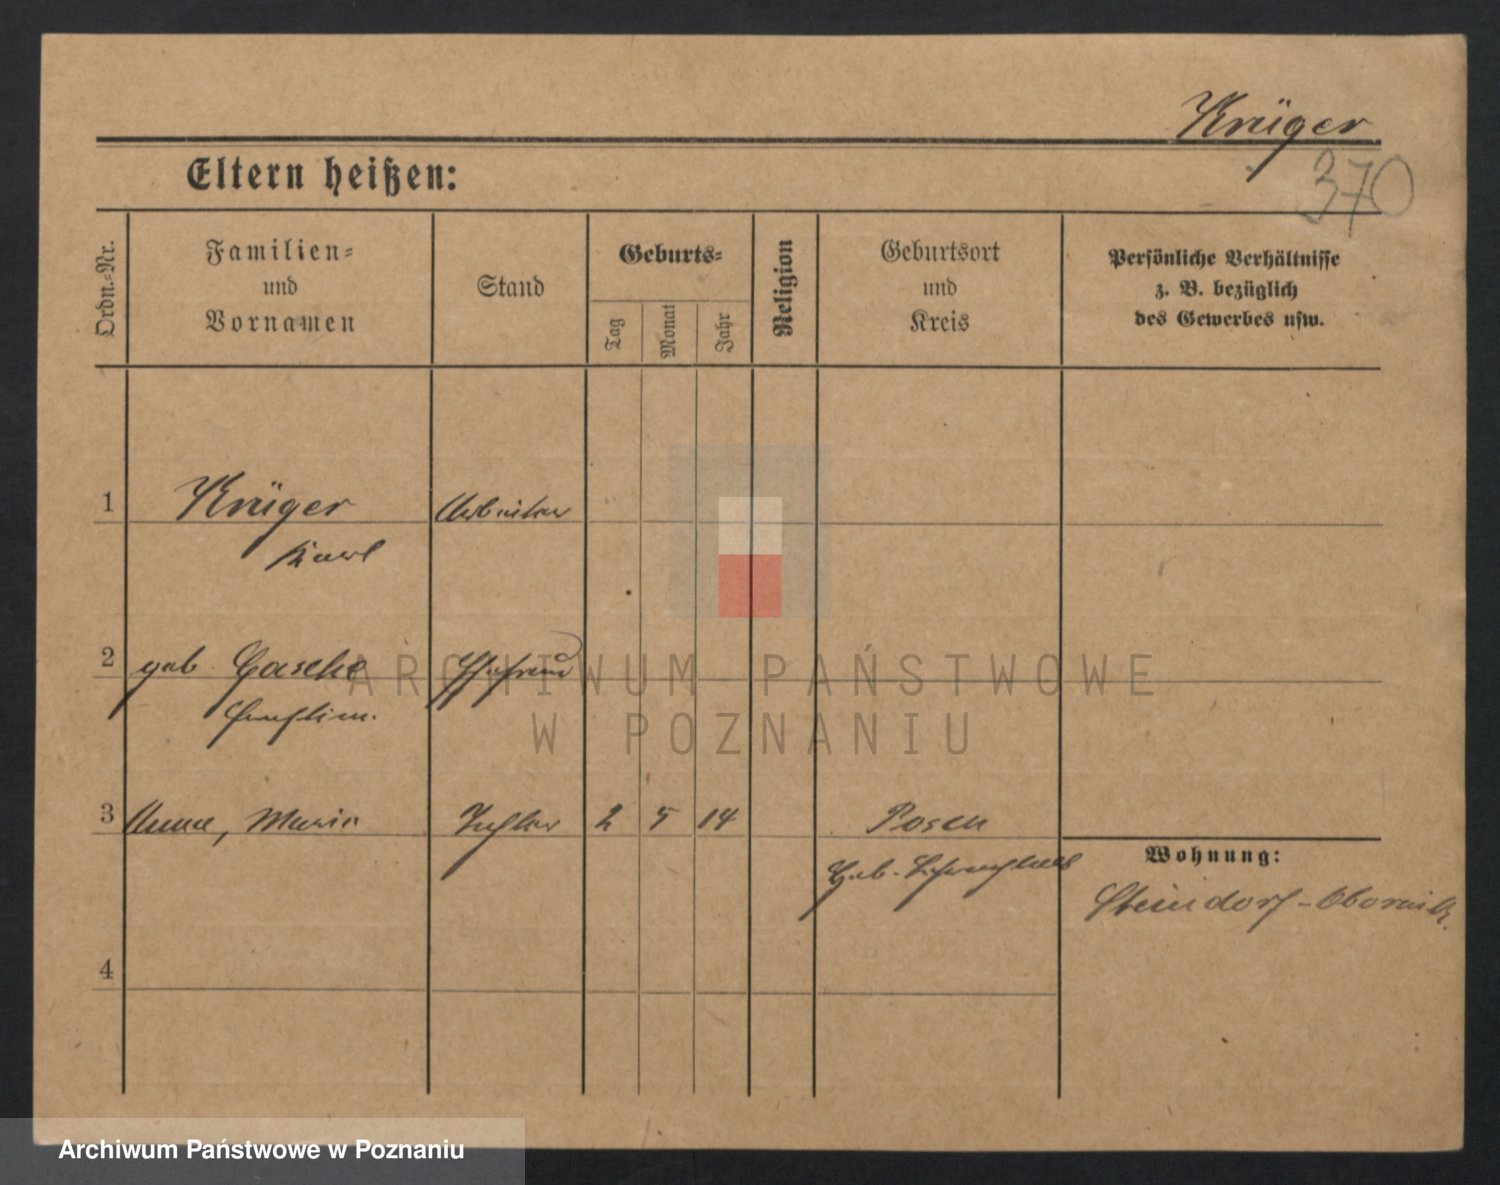 Krüger
370
Eltern heißen:
Ordn.-Nr.
Familien-
und
Vornamen
Stand
Geburts-
Tag
Monat
Jahr
Religion
Geburtsort
und
Kreis
Persönliche Verhältnisse
z. B. bezüglich
des Gewerbes usw.
1
Krüger
Arbeiter
Karl
2
geb. Gaschke
Ehefrau
3
Anna, Maria
Tochter
2
5
14
Posen
Wohnung:
Steindorf-Obornik.
4
ARCHIWUM PAŃSTWOWE
W POZNANIU
Archiwum Państwowe w Poznaniu